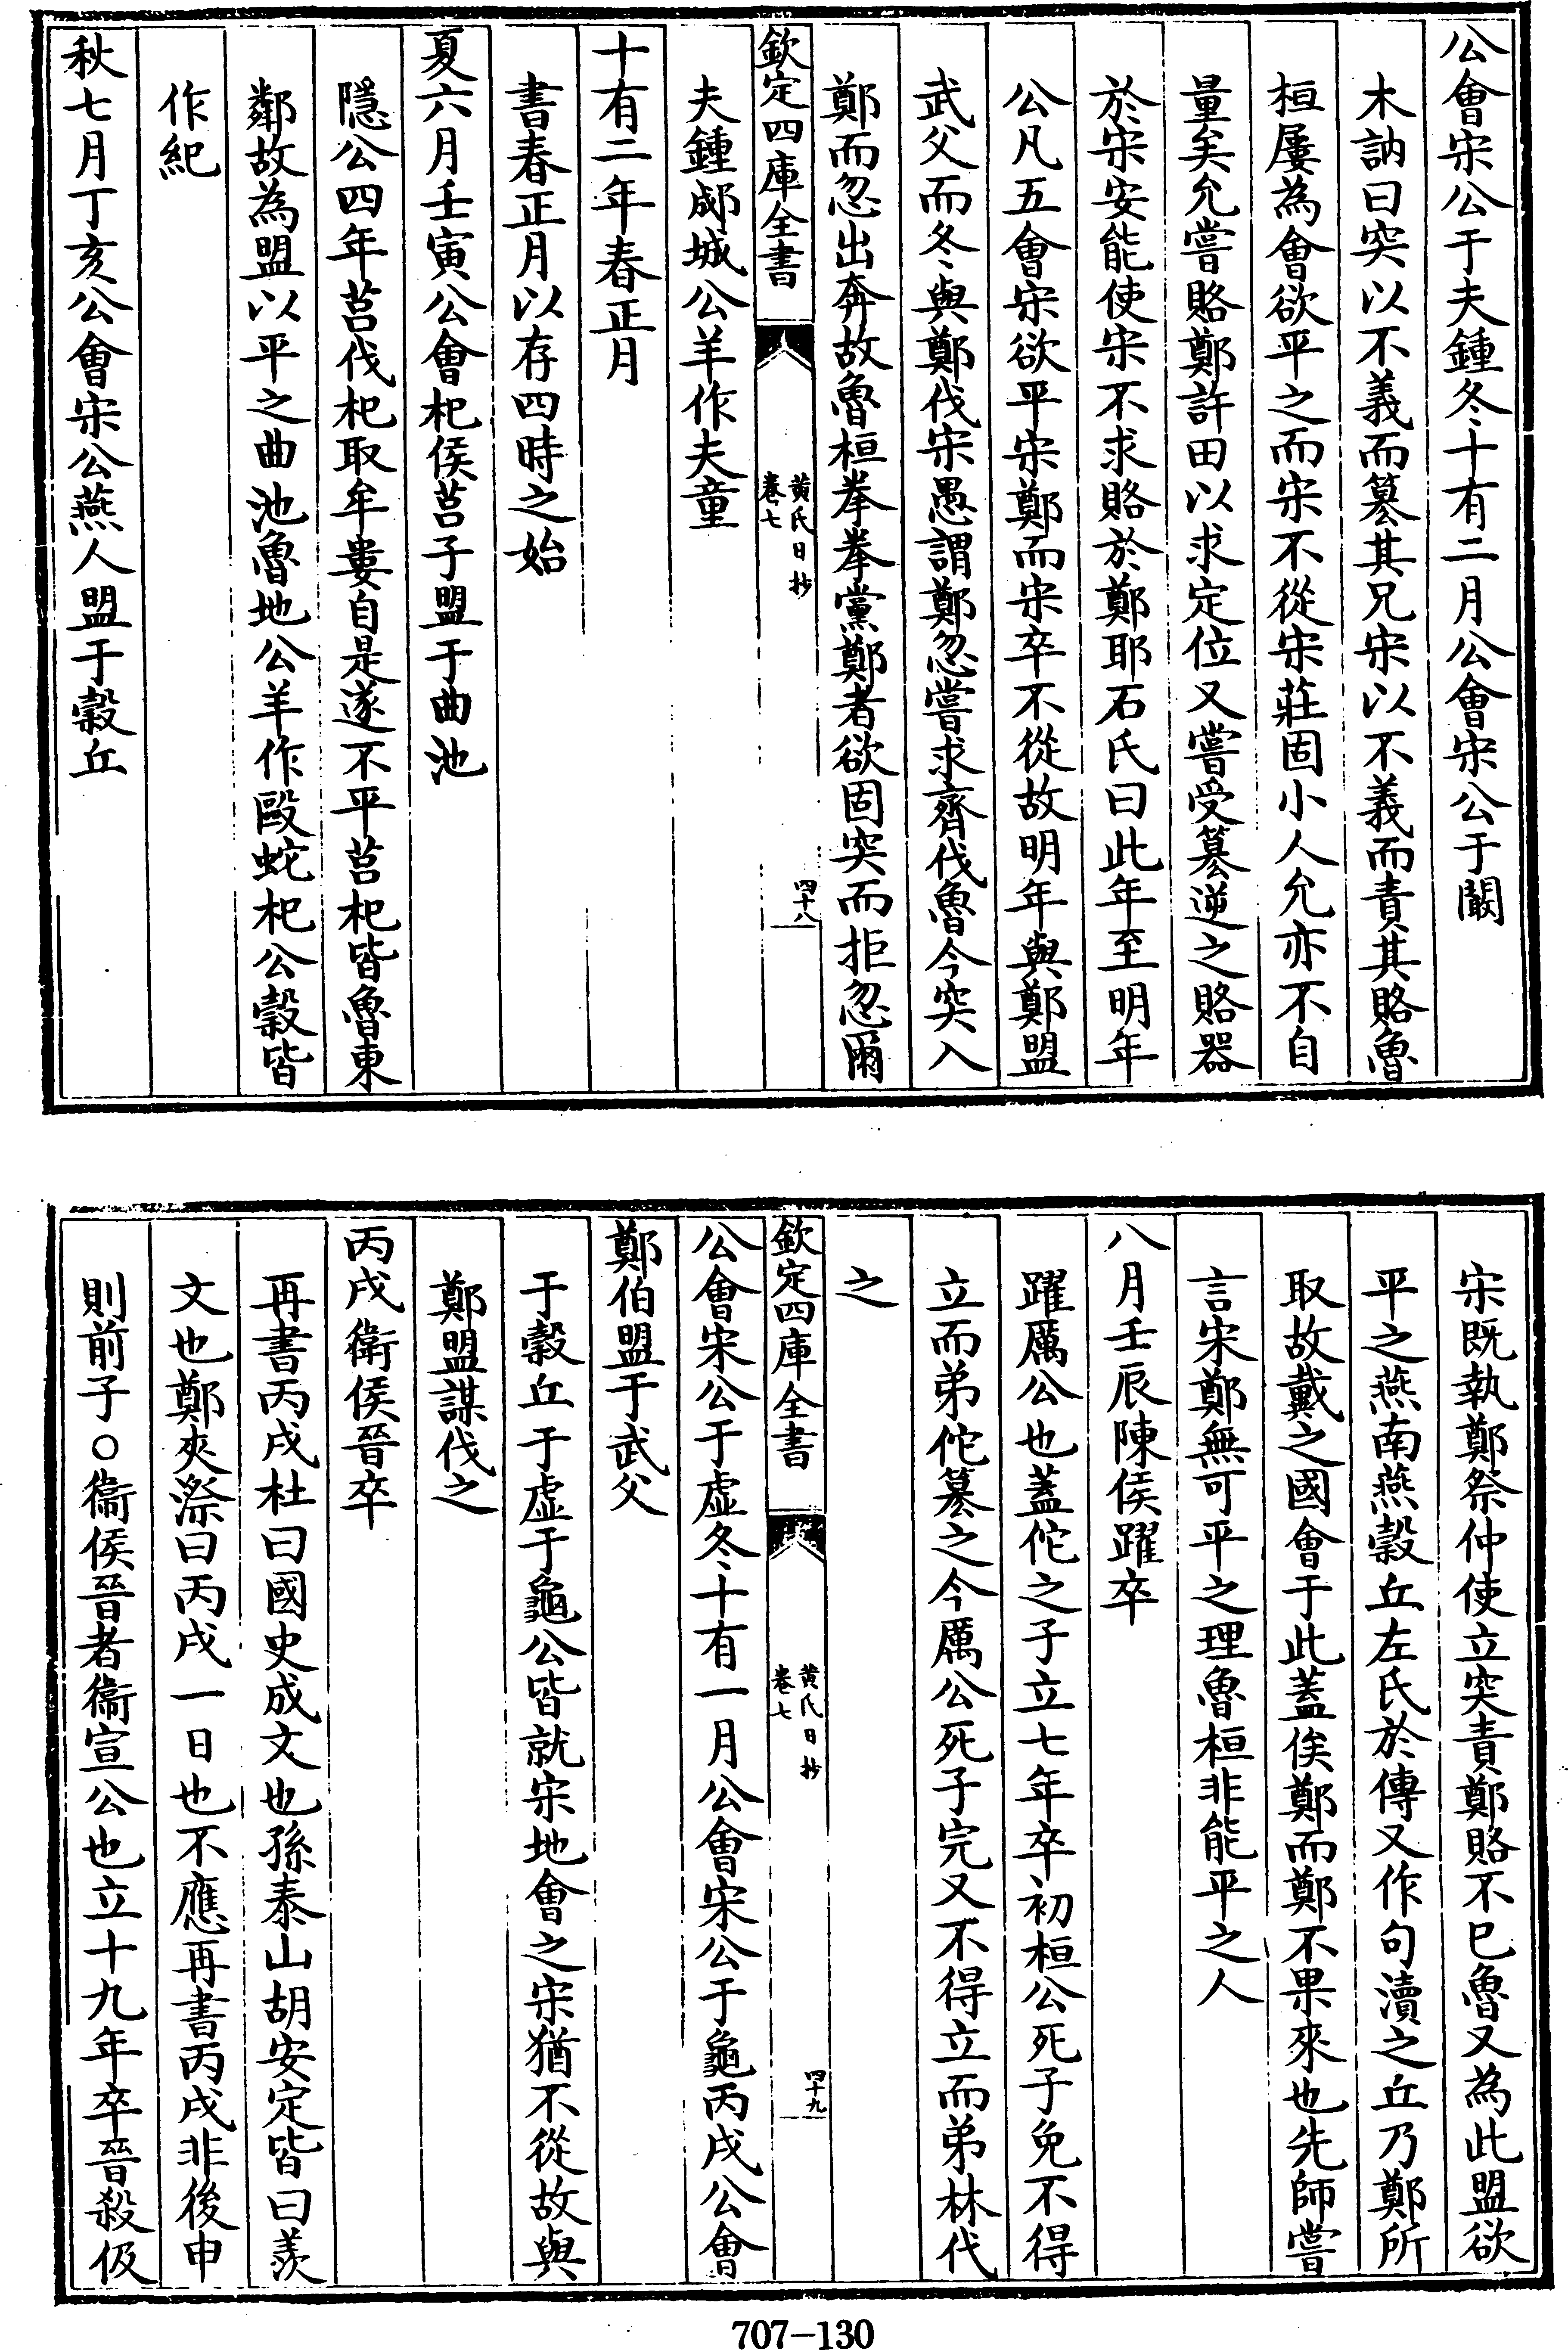 公會宋公于夫鍾冬十有二月公會宋公于闞
木訥曰突以不義而簒其兄宋以不義而責其賂魯
桓屢為會欲平之而宋不從宋莊固小人允亦不自
量矣允嘗賂鄭許田以求定位又嘗受簒逆之賂器
於宋安能使宋不求賂於鄭耶石氏曰此年至明年
公凡五會宋欲平宋鄭而宋卒不從故明年與鄭盟
武父而冬與鄭伐宋愚謂鄭忽嘗求齊伐魯今突入
鄭而忽出奔故魯桓拳拳黨鄭者欲固突而拒忽爾
欽定四庫全書
黄氏日抄
卷七
四十八
夫鍾郕城公羊作夫童
十有二年春正月
書春正月以存四時之始
夏六月壬寅公會杞侯莒子盟于曲池
隱公四年莒伐杞取牟婁自是遂不平莒杞皆魯東
鄰故為盟以平之曲池魯地公羊作毆蛇杞公穀皆
作紀
秋七月丁亥公會宋公燕人盟于穀丘
宋既執鄭祭仲使立突責鄭賂不巳魯又為此盟欲
平之燕南燕穀丘左氏於傳又作句瀆之丘乃鄭所
取故戴之國會于此蓋俟鄭而鄭不果來也先師嘗
言宋鄭無可平之理魯桓非能平之人
八月壬辰陳侯躍卒
躍厲公也蓋佗之子立七年卒初桓公死子免不得
立而弟佗簒之今厲公死子完又不得立而弟林代
之
欽定四庫全書
黄氏日抄
卷七
四十九
公會宋公于虛冬十有一月公會宋公于龜丙戌公會
鄭伯盟于武父
于穀丘于虛于龜公皆就宋地會之宋猶不從故與
鄭盟謀伐之
丙戌衛侯晉卒
再書丙戌杜曰國史成文也孫泰山胡安定皆曰羨
文也鄭夾漈曰丙戌一日也不應再書丙戌非後申
則前子○衞侯晉者衞宣公也立十九年卒晉殺伋
707-130